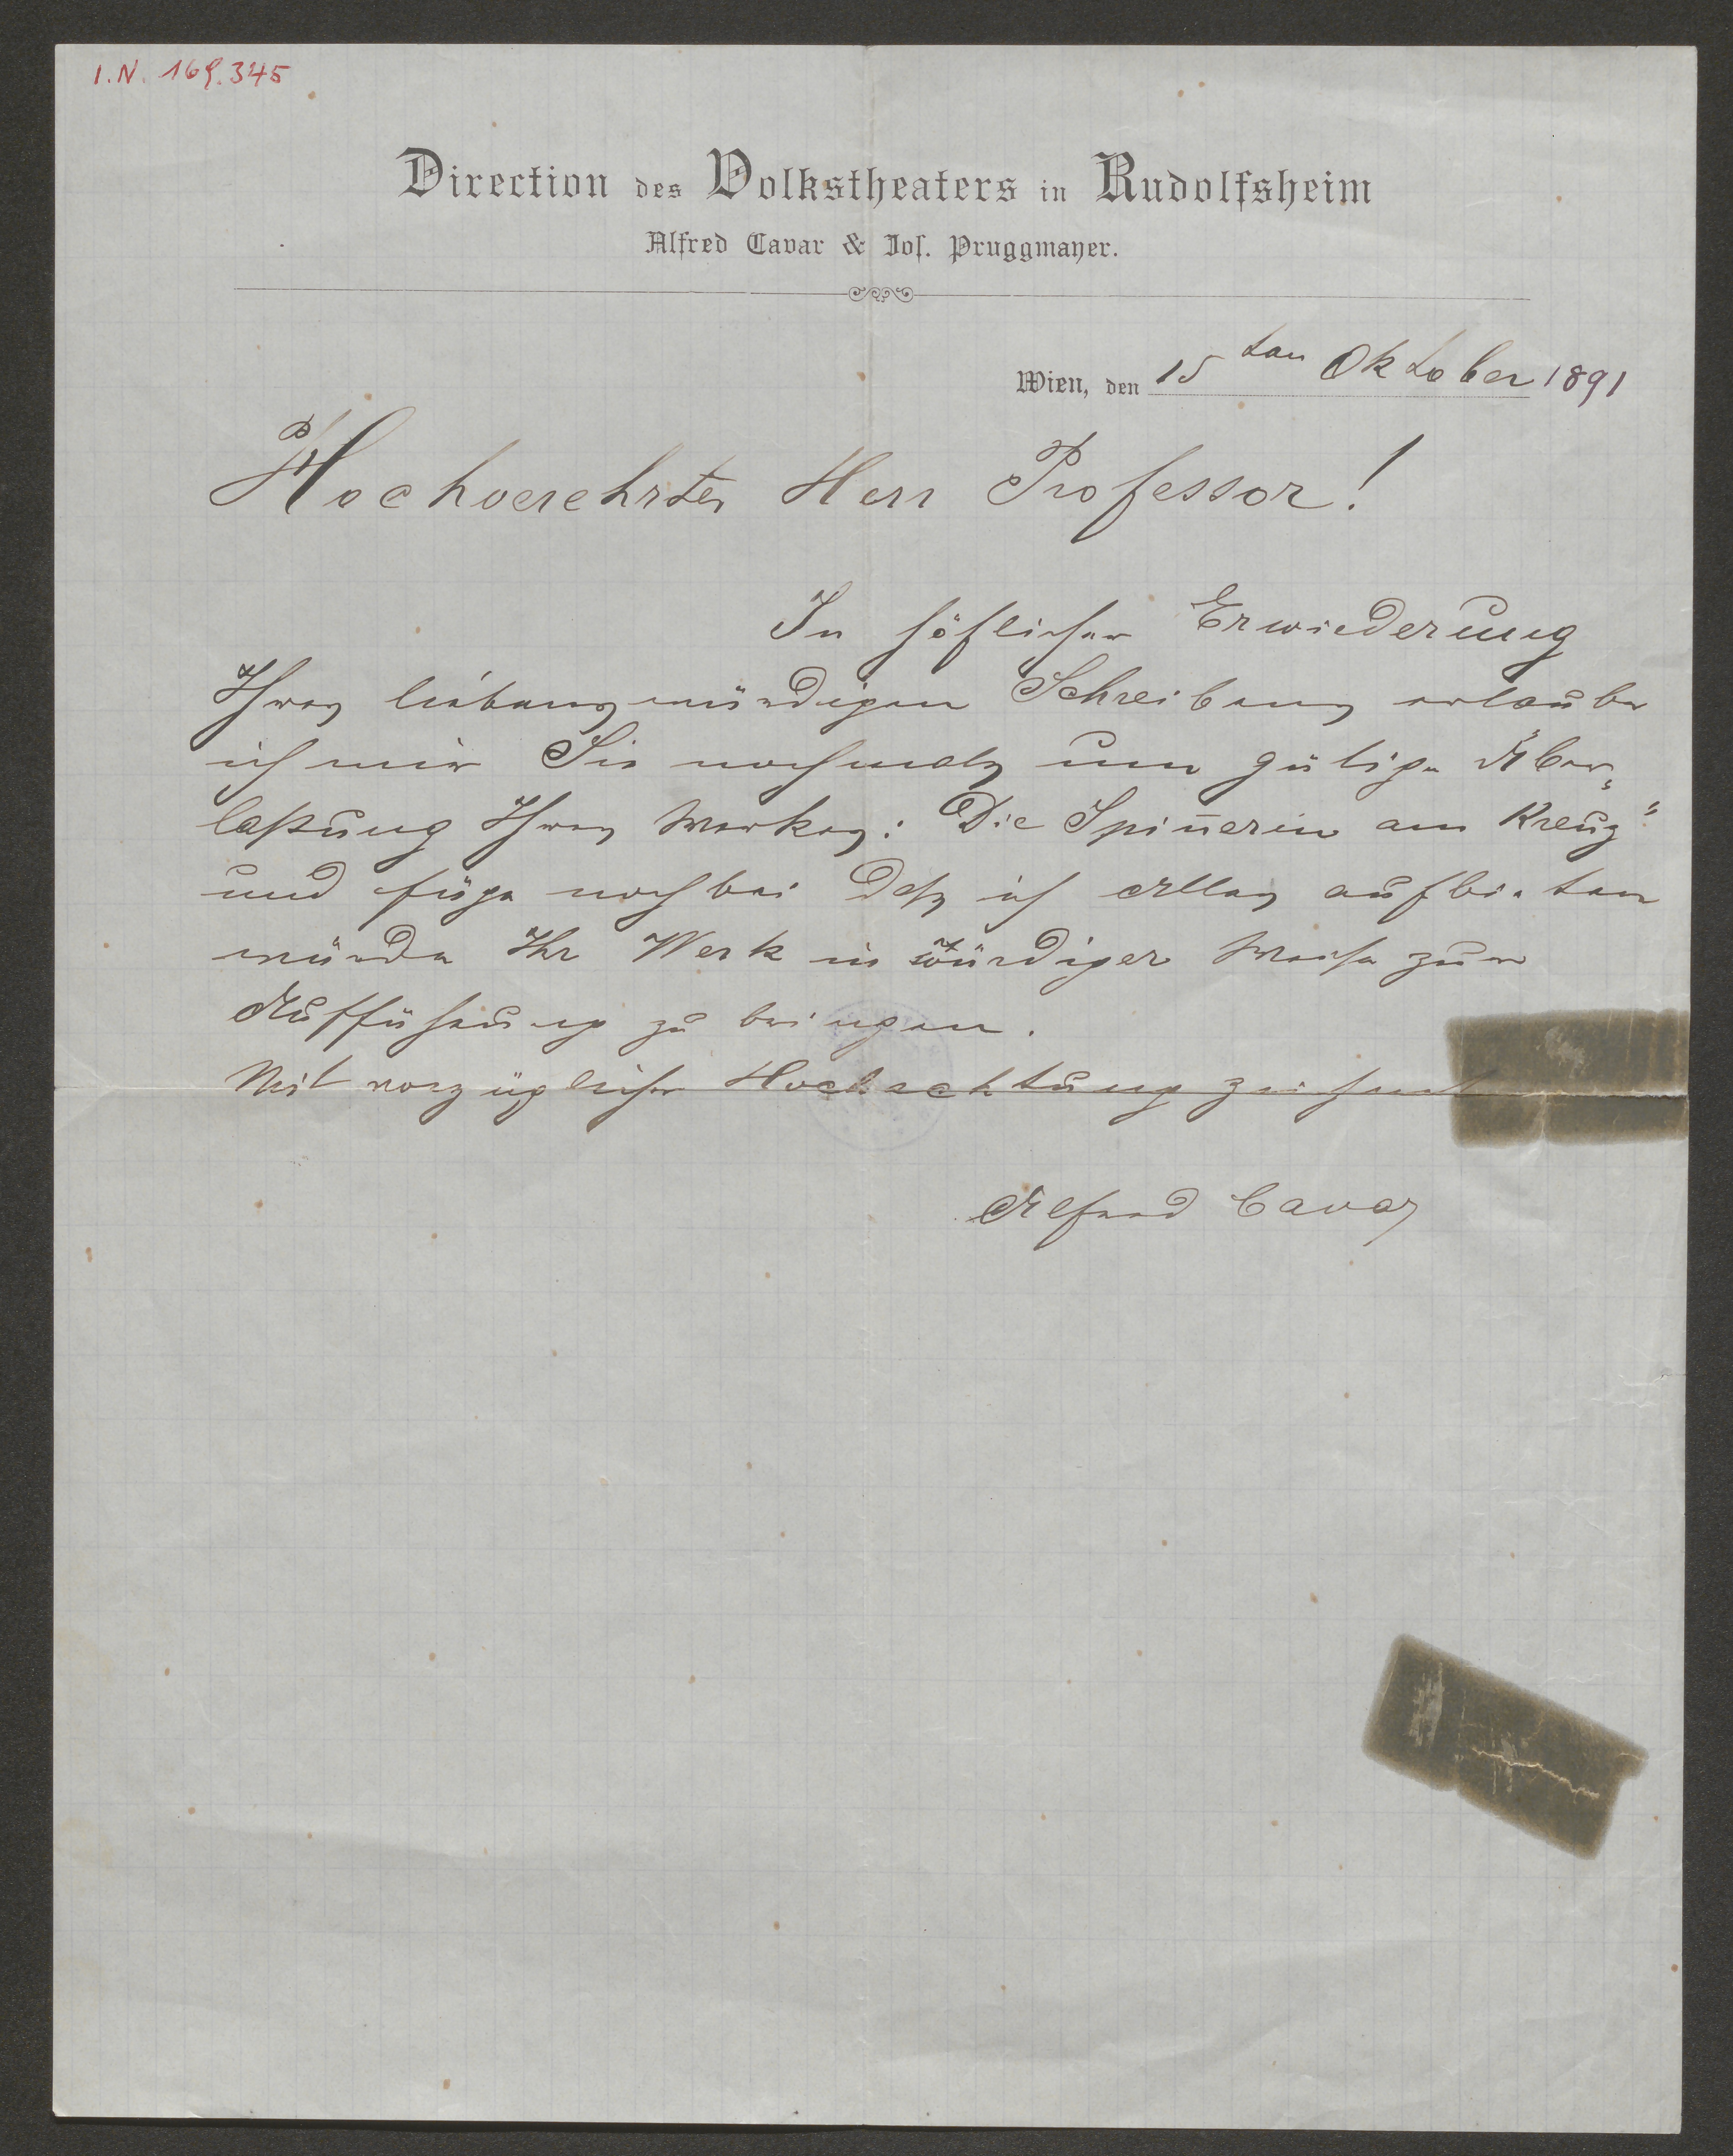 I.N. 169.345
Direction des Volkstheaters in Rudolfsheim
Alfred Cavar & Jos. Pruggmayer.
Wien, den 15ten Oktober 1891
Hochverehrter Herr Professor!
In höflicher Erwiederung
Ihres liebenswürdigen Schreibens erlaube
ich mir Sie nochmals um gütige Über„
laßung Ihres Werkes: Die Spin̄erin am Kreuz"
und füge noch bei daß ich Alles aufbieten
würde Ihr Werk in würdiger Weise zur
Aufführung zu bringen.
Mit vorzüglicher Hochachtung zeichnet
Alfred Cavar